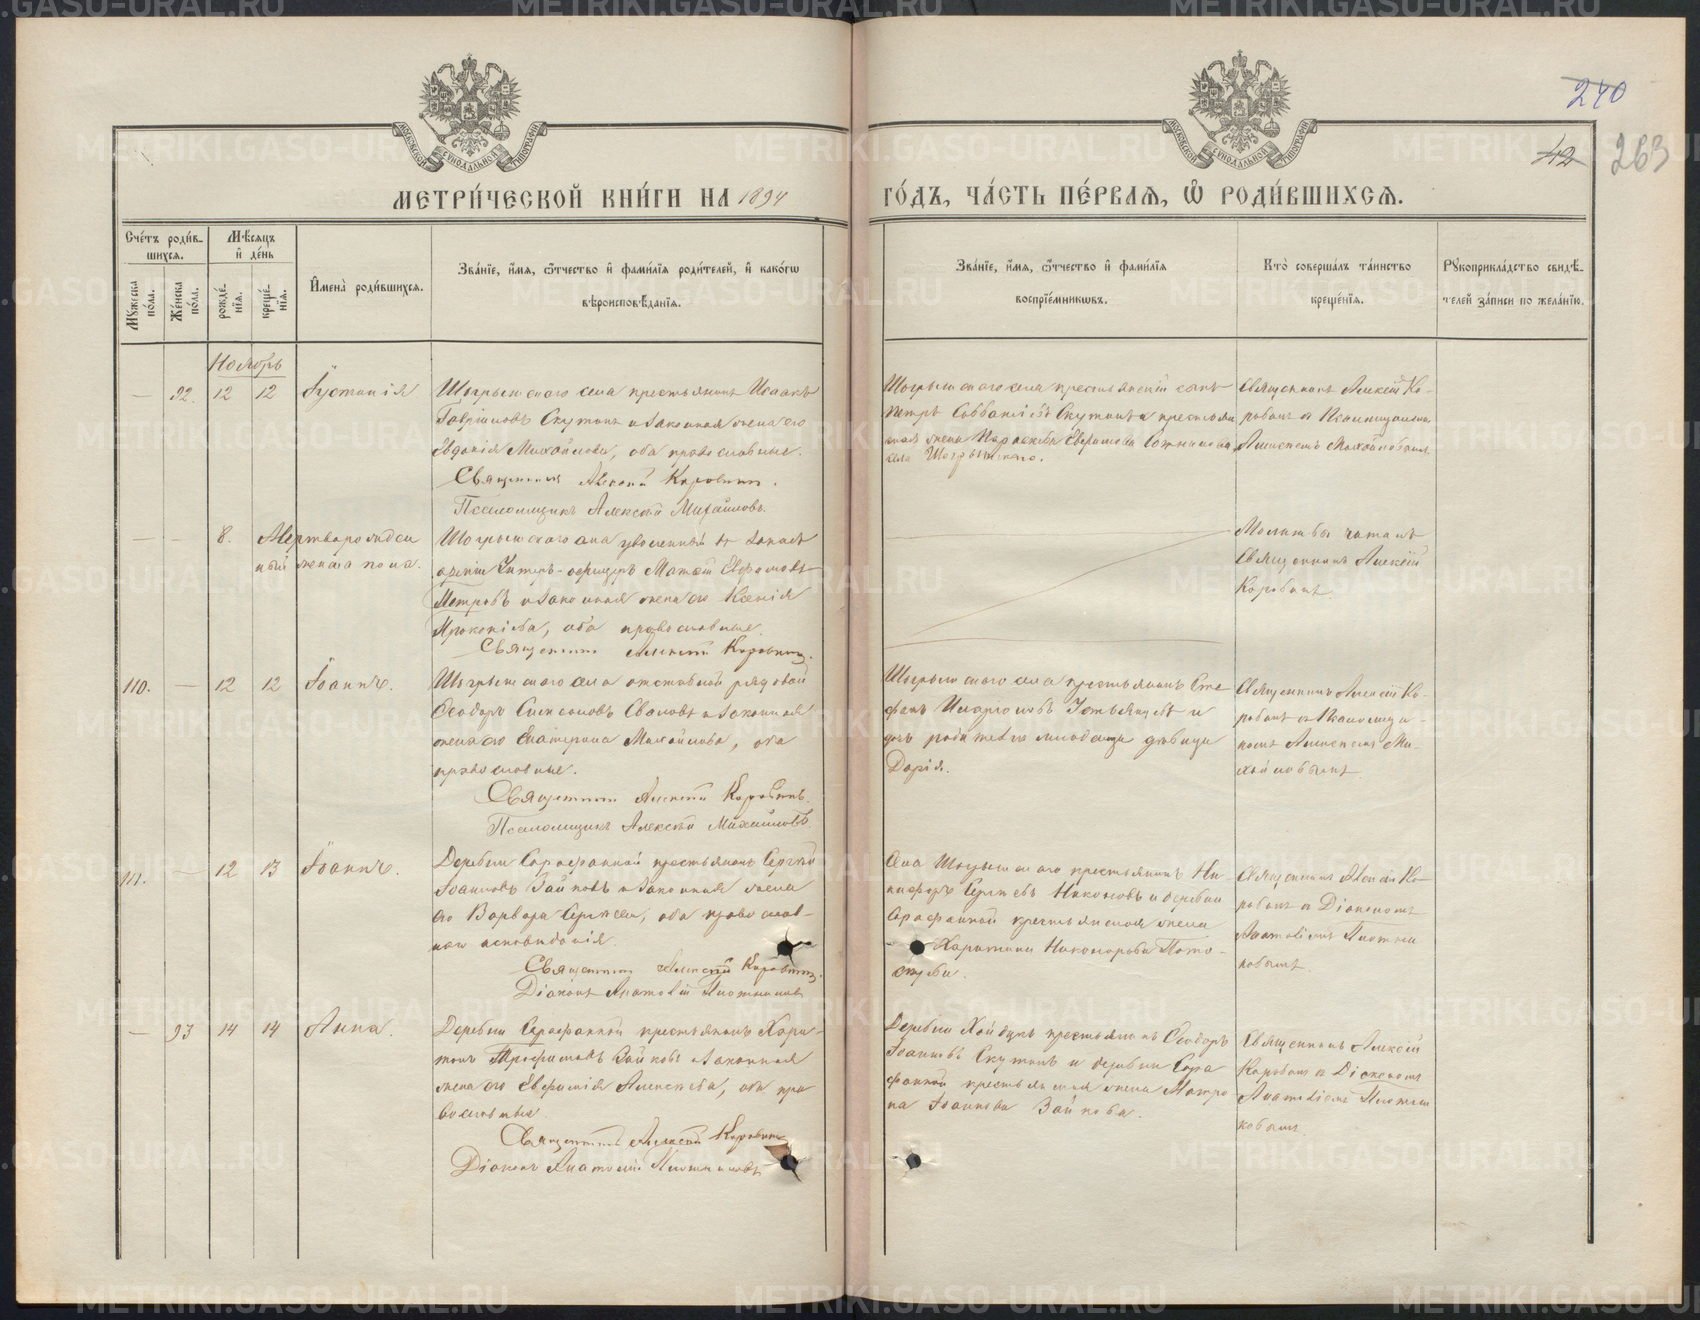 240
42
263
МОСКОВСКОЙ СУНОДАЛЬНОЙ ТИПОГРАФИИ
МОСКОВСКОЙ СУНОДАЛЬНОЙ ТИПОГРАФИИ
МЕТРИ́ЧЕСКОЙ КНИ́ГИ НА 1894
ГО́ДЪ, ЧА́СТЬ ПЕ́РВАѦ, Ѽ РОДИ́ВШИХСѦ.
Сче́тъ роди́в-
шихся.
Мѣ́сяцъ
и҆ де́нь
Мꙋжеска по́ла.
Женска по́ла.
рожде́нїѧ.
креще́нїѧ.
И҆мена̀ роди́вшихся.
Зва́нїе, и҆́мѧ, ѻ҆́тчество и҆ фами́лїѧ роди́телей, и҆ како́гѡ
вѣроисповѣ́данїѧ.
Зва́нїе, и҆́мѧ, ѻ҆́тчество и҆ фами́лїѧ
воспрїе́мникѡвъ.
Кто̀ соверша́лъ та́инство
креще́нїѧ.
Рꙋкоприкла́дство свидѣ́-
телей за́писи по жела́нїю.
Ноябрь
— 92. 12 12 Іустинія
Шогрышскаго села крестьянинъ Исаакъ
Гавріиловъ Скутинъ и законная жена его
Евдокія Михайлова, оба православные.
Священникъ Алексій Коровинъ.
Псаломщикъ Алексій Михайловъ.
Шогрышскаго села крестьянскій сынъ
Петръ Савватіевъ Скутинъ и крестьян
ская жена Параскева
села Шогрышскаго.
Священникъ Алексій Ко-
ровинъ съ Псаломщикомъ
Алексіемъ Михайловымъ
— — 8. Мертворожден
ный женскаго пола.
Шогрышскаго села уволенный въ запасъ
арміи Унтеръ-офицеръ
и законная жена его Ксенія
Прокопіева, оба православные.
Священникъ Алексій Коровинъ.
Молитвы читалъ
Священникъ Алексій
Коровинъ
110. — 12 12 Іоаннъ.
Шогрышскаго села отставной рядовой
Ѳеодоръ и законная
жена его Екатерина Михайлова, оба
православные.
Священникъ Алексій Коровинъ.
Псаломщикъ Алексій Михайловъ
Шогрышскаго села крестьянинъ Сте
фанъ и
дочь родителя младенца дѣвица
Дарія.
Священникъ Алексій Ко-
ровинъ съ Псаломщи-
комъ Алексіемъ Ми-
хайловымъ
111. — 12 13 Іоаннъ.
Деревни Сарафанной крестьянинъ Сергій
Іоанновъ Зайковъ и законная жена
его Варвара Сергіева, оба православ-
наго исповѣданія.
Священникъ Алексій Коровинъ.
Діаконъ Анатолій Плотниковъ
Села Шогрышскаго крестьянинъ Ни-
кифоръ Сергіевъ Никоновъ и деревни
Сарафанной крестьянская жена
Харитина Никанорова Пото-
скуева.
Священникъ Алексій Ко-
ровинъ съ Діакономъ
Анатоліемъ Плотни
ковымъ
— 93 14 14 Анна.
Деревни Сарафанной крестьянинъ Хари-
тонъ Трофимовъ Зайковъ и законная
жена его Евфимія Алексѣева, оба пра
вославные.
Священникъ Алексій Коровинъ
Діаконъ Анатолій Плотниковъ
Деревни крестьянинъ Ѳеодоръ
Іоанновъ Скутинъ и деревни Сара
фанной крестьянская жена Матро
на Іоаннова Зайкова.
Священникъ Алексій
Коровинъ съ Діакономъ
Анатоліемъ Плотни
ковымъ
METRIKI.GASO-URAL.RU